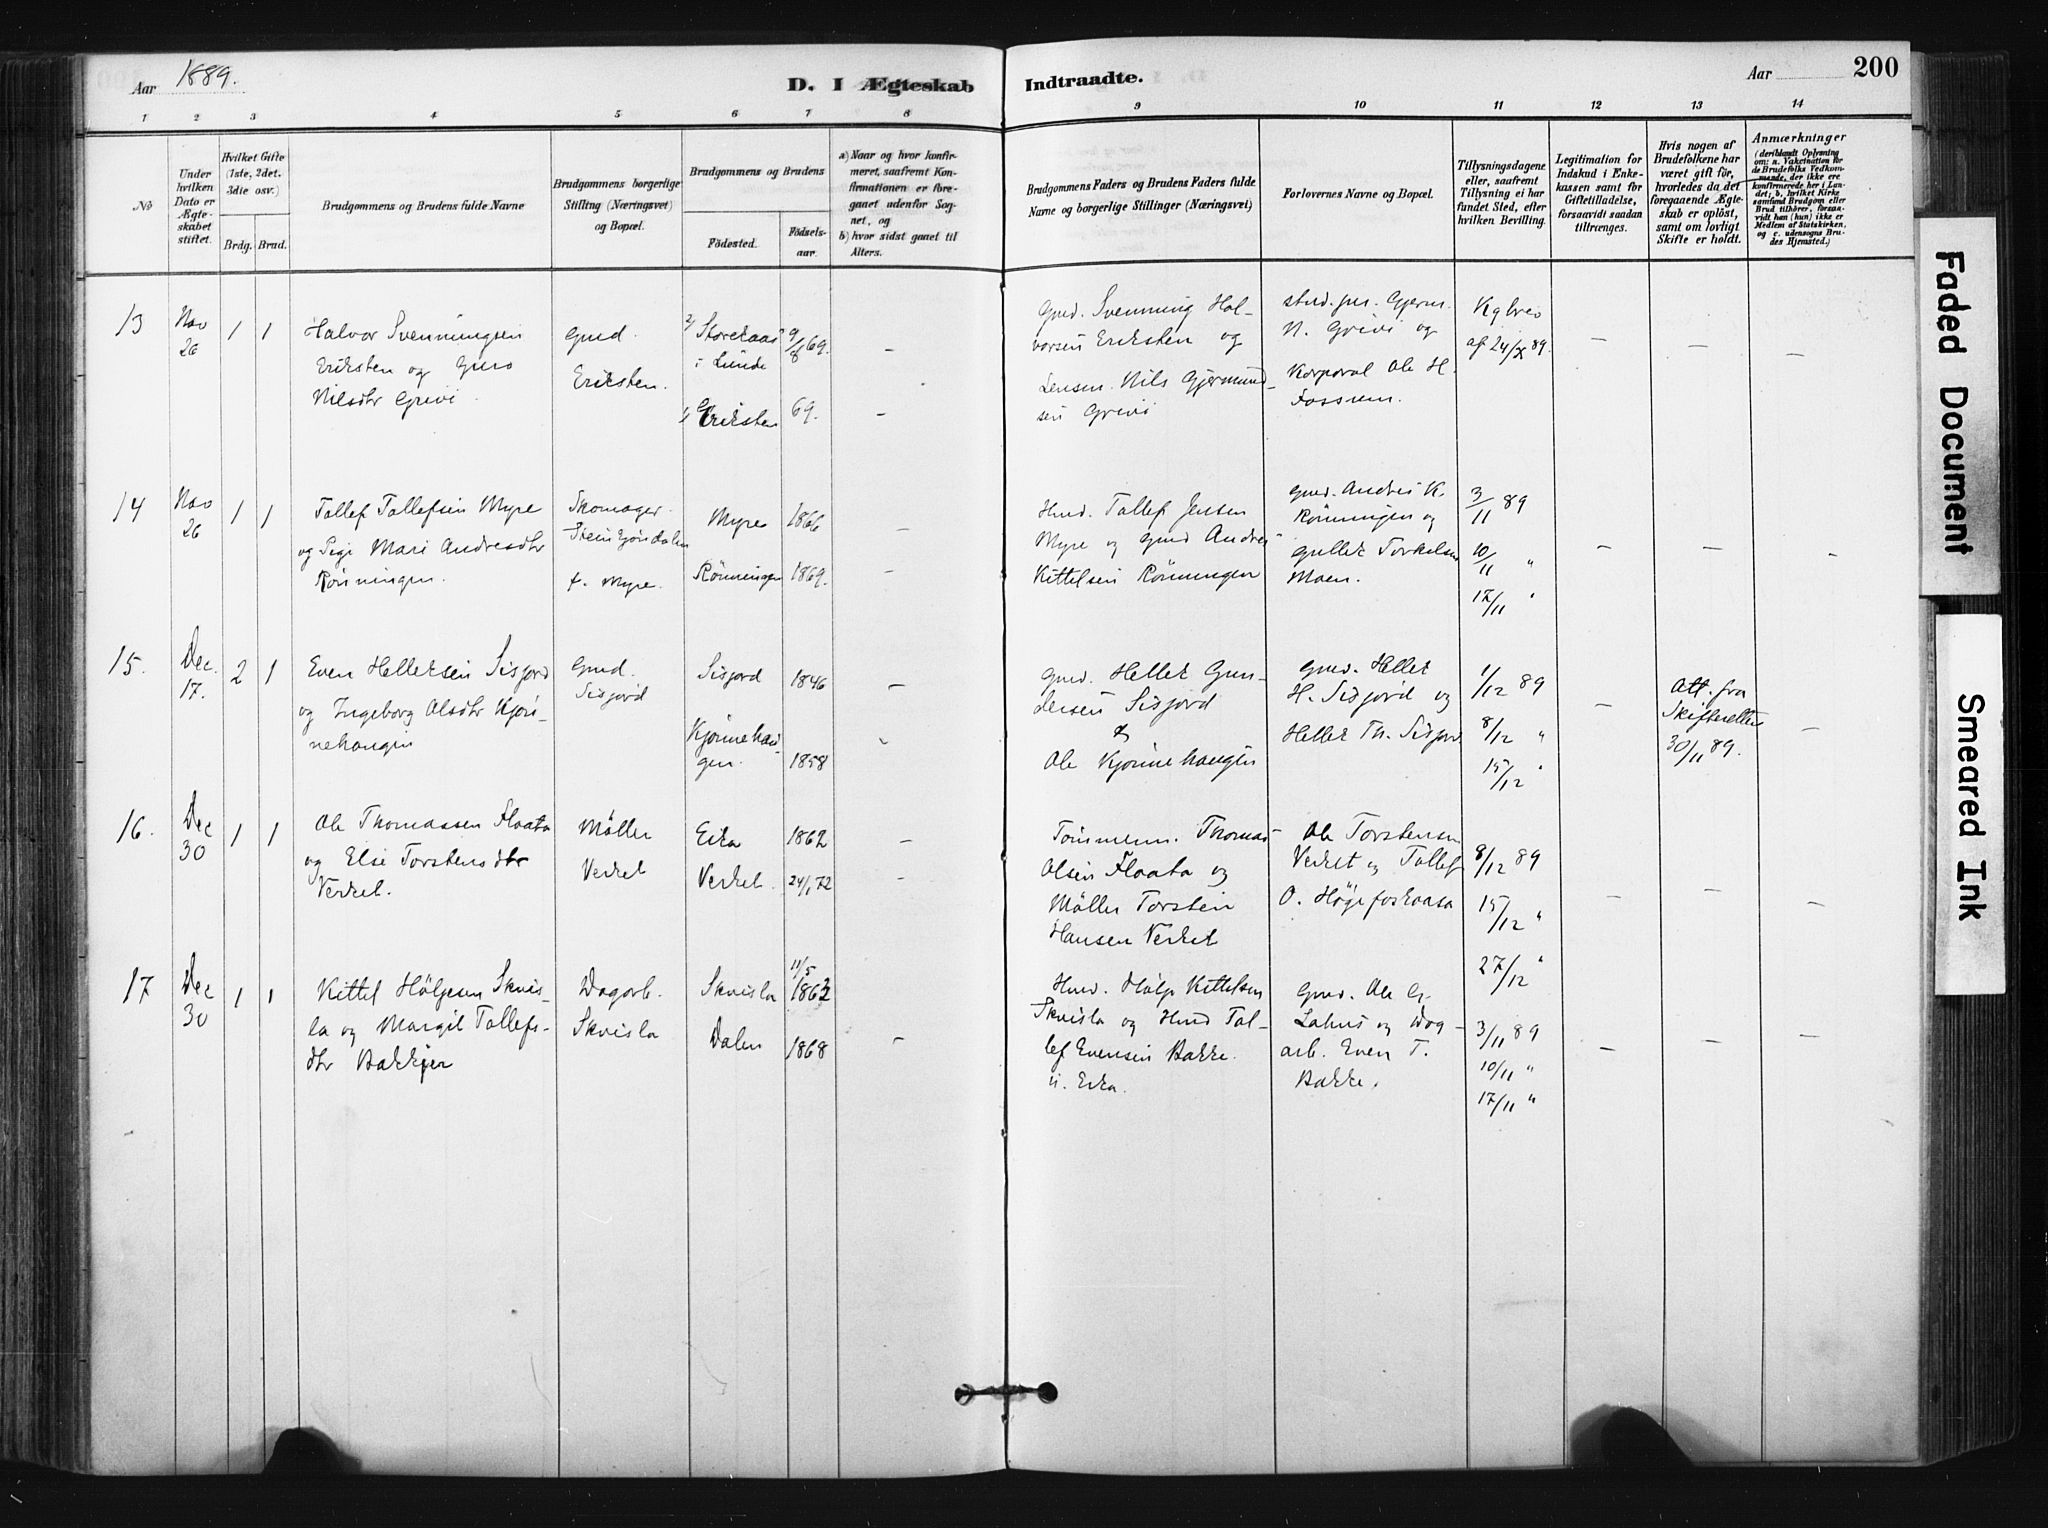 Aar 1889.
D. I Ægteskab Indtraadte.
Aar 200
1 2 3 4 5 6 7 8 9 10 11 12 13 14
No
Under hvilken Dato er Ægteskabet stiftet.
Hvilket Gifte (1ste, 2det, 3die osv.)
Brdg. Brud.
Brudgommens og Brudens fulde Navne
Brudgommens borgerlige Stilling (Næringsvei) og Bopæl.
Brudgommens og Brudens
Fødested. Fødselsaar.
a) Naar og hvor konfirmeret, saafremt Konfirmationen er foregaaet udenfor Sognet, og
b) hvor sidst gaaet til Alters.
Brudgommens Faders og Brudens Faders fulde Navne og borgerlige Stillinger (Næringsvei)
Forlovernes Navne og Bopæl.
Tillysningsdagene eller, saafremt Tillysning ei har fundet Sted, efter hvilken Bevilling.
Legitimation for Indskud i Enkekassen samt for Giftetilladelse, forsaavidt saadan tiltrænges.
Hvis nogen af Brudefolkene har været gift før, hvorledes da det foregaaende Ægteskab er opløst, samt om lovligt Skifte er holdt.
Anmærkninger
(deriblandt Oplysning om: a. Vakcination for de Brudefolks Vedkommende, der ikke ere konfirmerede her i Landet; b. hvilket Kirkesamfund Brudgom eller Brud tilhører, forsaavidt han (hun) ikke er Medlem af Statskirken, og c. udensogns Brudes Hjemsted.)
13 Nov 26 1 1
Halvor Svenningsen
Eriksten og Guro
Nilsdtr Grivi
Gmd.
Eriksten.
Storekaas i Lunde 9/8 69. –
Eriksten 69. –
Gmd. Svenning Hal-
vorsen Eriksten og
Lensm. Nils Gjermund-
sen Grivi
stud. jur. Gjerm.
N. Grivi og
Korporal Ole H.
Fossum.
Kgbrev
af 24/X 89.
– – –
14 Nov 26 1 1
Tallef Tallefsen Myre
og Sigr Mari Andresdtr
Rønningen.
Skomager
Steinsjondalen
f. Myre.
Myre 1866 –
Rønningen 1869. –
Husd. Tallef Jensen
Myre og Gmd Andres
Kittelsen Rønningen
Gmd. Andres K.
Rønningen og
Gullek Torkelsen
Moen.
3/11 89
10/11 "
17/11 "
– – –
15. Dec. 17. 2 1
Even Helleksen Sisjord
og Ingeborg Olsdtr Kjøn-
nehaugen
Gmd.
Sisjord
Sisjord 1846 –
Kjønnehau-
gen. 1858
Gmd. Hellek Gun-
dersen Sisjord
&
Ole Kjønnehaugen
Gmd. Hellek
H. Sisjord og
Hellek Th. Sisjord
1/12 89
8/12 "
15/12 "
–
Att. fra
Skifteretten
30/11 89.
–
16. Dec 30 1 1
Ole Thomassen Flaata
og Else Torstensdtr
Verket.
Møller
Verket
Eika 1862 –
Verket. 24/1 72 –
Tømmerm. Thomas
Olsen Flaata og
Møller Torstein
Hansen Verket
Ole Torstensen
Verket og Tallef
O. Høgefoskaasa
8/12 89
15/12 "
27/12 "
– – –
17 Dec 30 1 1
Kittel Hølgesen Skvis-
la og Margit Tallefs-
dtr Bakkjen
Dagarb.
Skvisla
Skvisla 11/5 1862
Dalen 1868 –
Husd. Hølje Kittelsen
Skvisla og Husd Tal-
lef Evensen Bakke
u. Eika.
Gmd. Ole G.
Lahus og Dag-
arb. Even T.
Bakke.
3/11 89
10/11 "
17/11 "
– – –
Faded Document
Smeared Ink